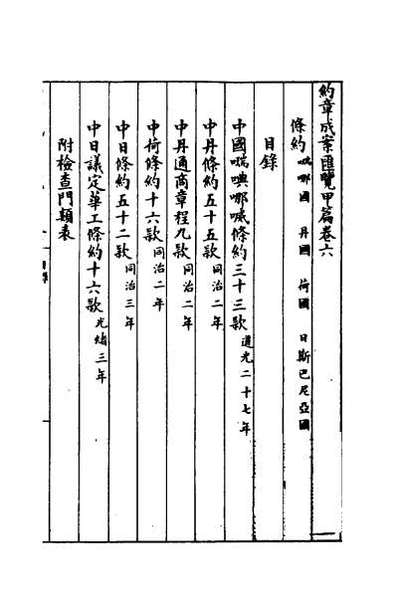 約章成案匯覽甲篇卷六
條約 㗏哪國 丹國 荷國 日斯巴尼亞國
目錄
中國㗏㘔哪㖞條約三十三款 道光二十七年
中丹條約五十五款 同治二年
中丹通商章程九款 同治二年
中荷條約十六款 同治二年
中日條約五十二款 同治三年
中日議定華工條約十六款 光緒三年
附檢查門類表